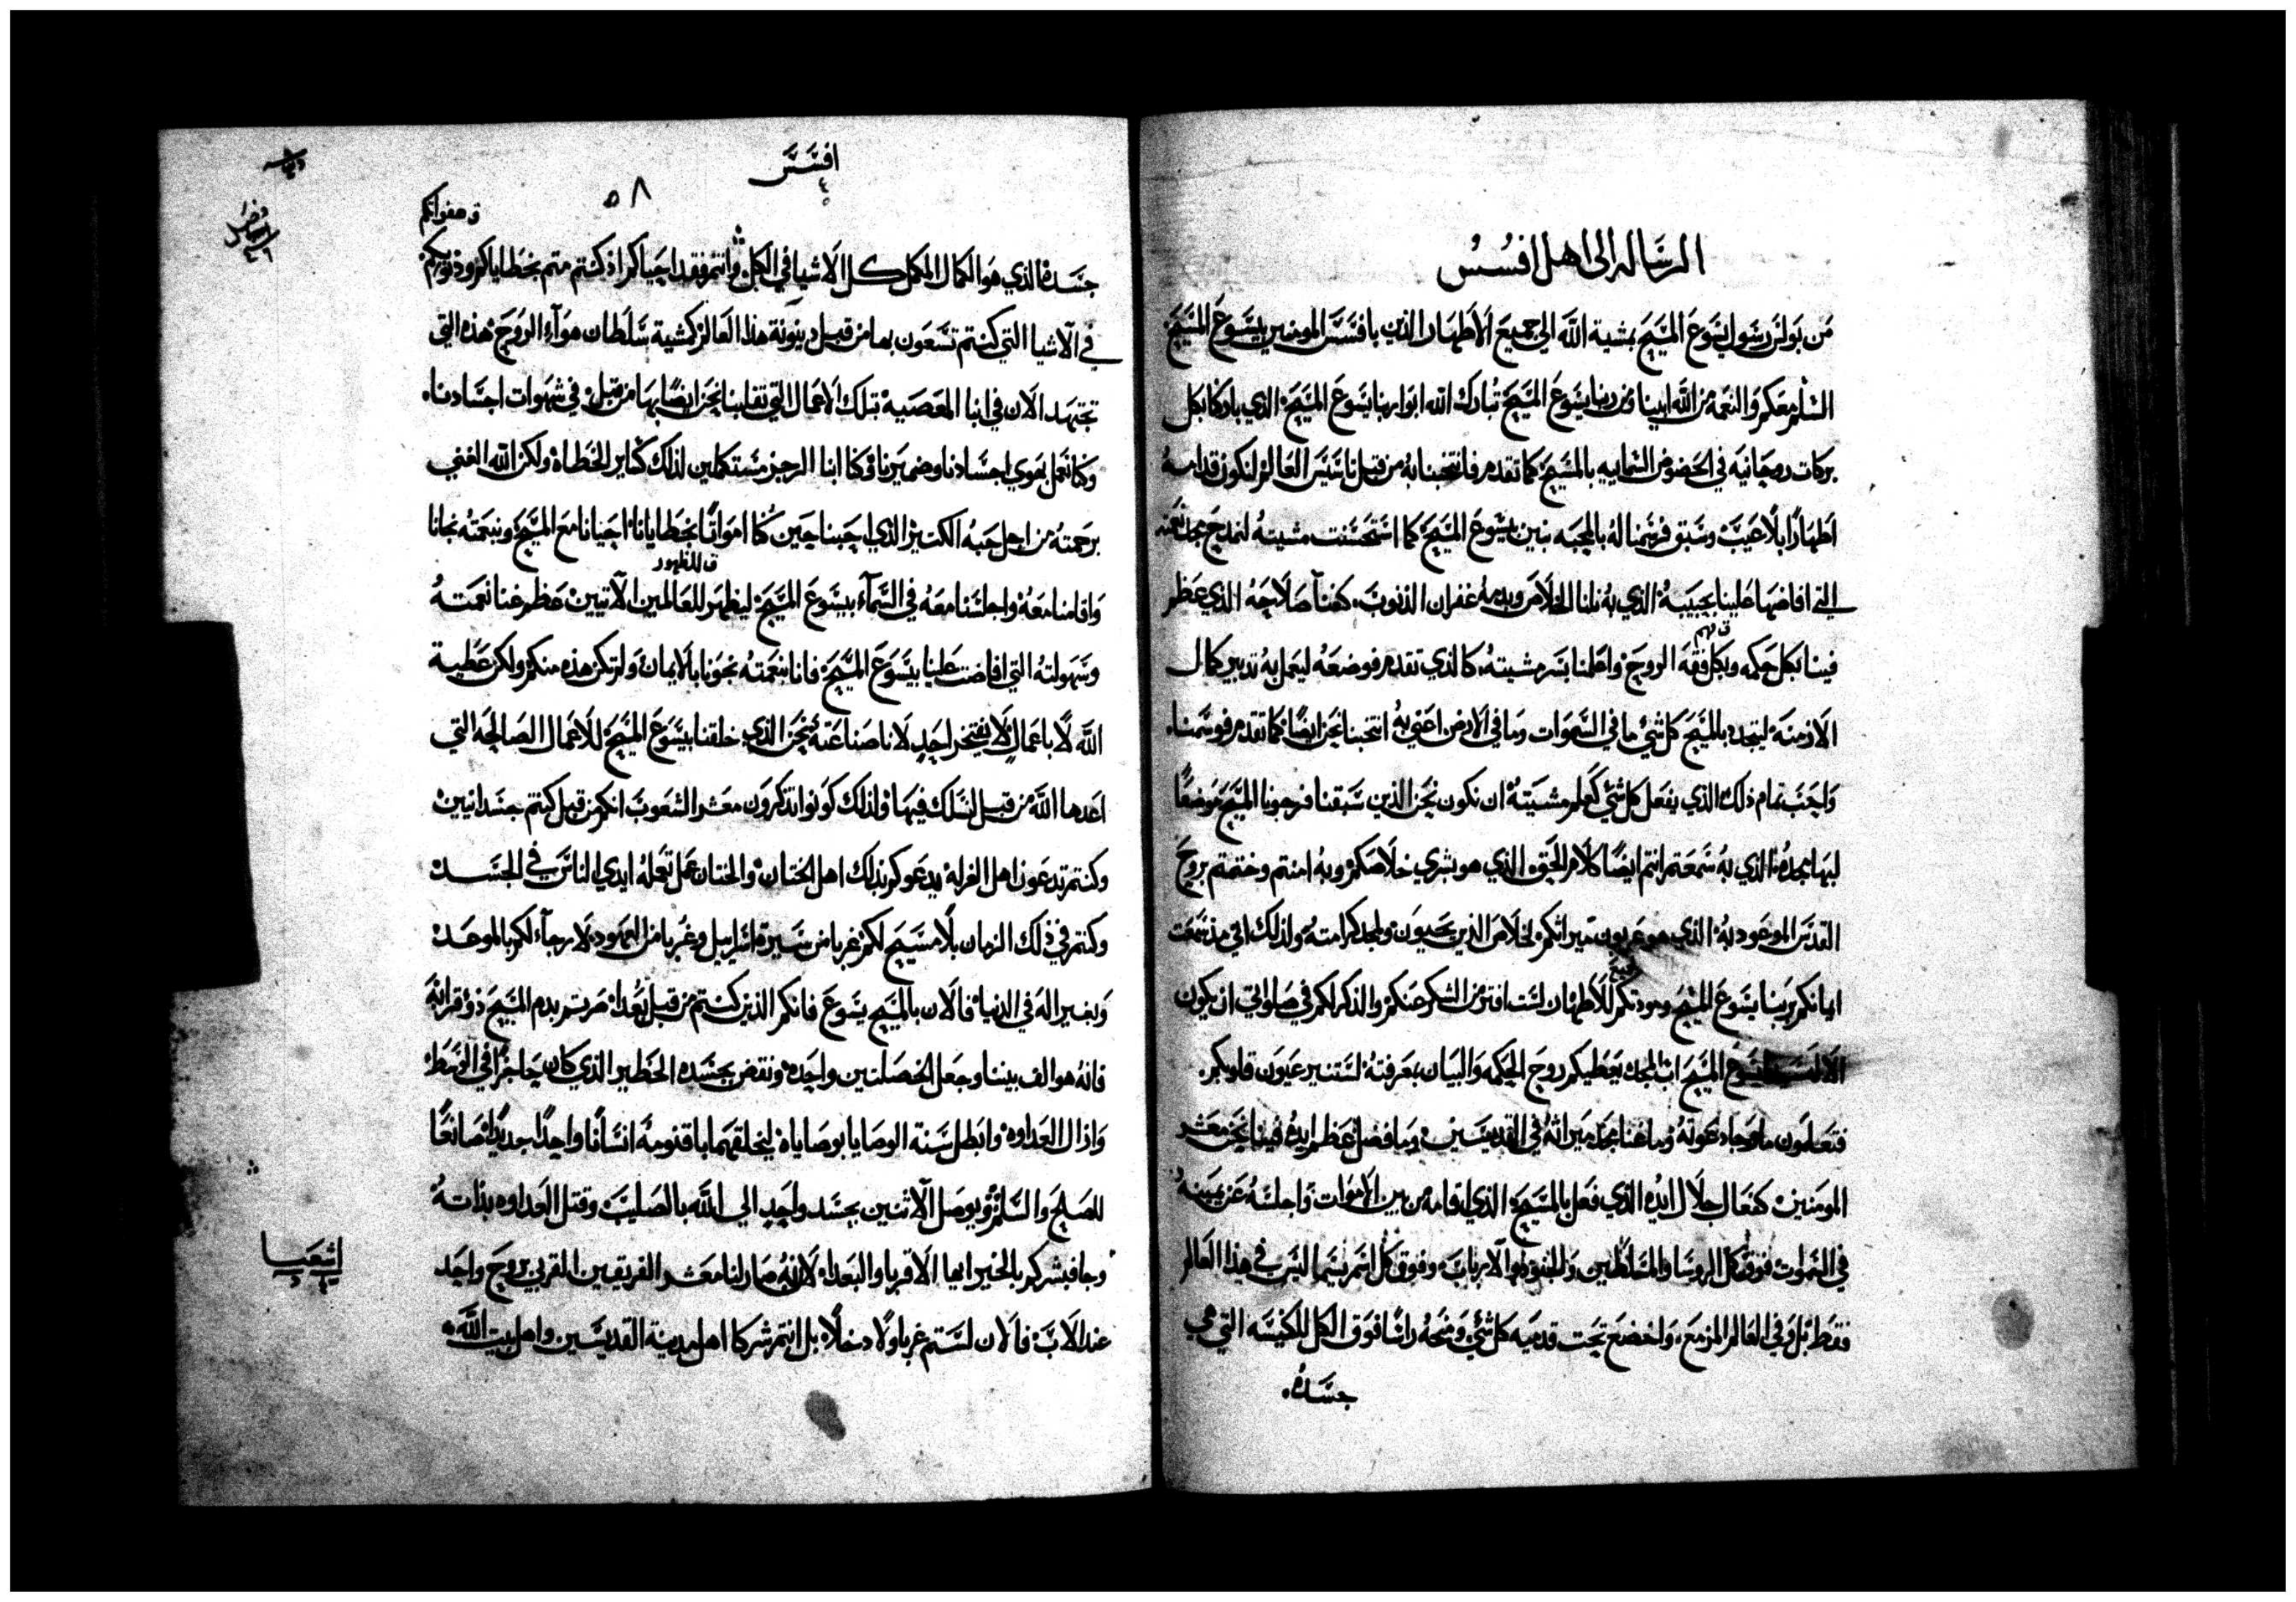 الرساله الى اهل افسس
من بولس رسول يسوع المسيح بمشية الله الي جميع الاطهار الذين بافسس المومنين بيسوع المسيح
السلم معكم والنعمه من الله ابينا ومن ربنا يسوع المسيح تبارك الله ابو ربنا يسوع المسيح الذي باركنا بكل
بركات روحانيه في الحضوض السماييه بالمسيح كما تقدم فانتخبنا به من قبل اساس العالم لنكون قدامه
اطهارًا بلا عيب وسبق فرسمنا له بالمحبه بنين بيسوع المسيح كما استحسنت مشيته لنمدح مجد نعمته
التي افاضها علينا بحبيبه الذي به نلنا الخلاص وبدمه غفران الذنوب كغنا صلاحه الذي عظم
ق فهم
فينا بكل حكمه وبكل فقه الروح واعلمنا بسر مشيته كالذي تقدم فوضعه ليعمل به تدبير كمال
الازمنه ليتجدد بالمسيح كل شي ما في السموات وما في الارض اعني به انتخبنا نحن ايضًا كما تقدم فوسمنا
واحب تمام ذلك الذي يفعل كل شي كعلم مشيته ان نكون نحن الذين سبقنا فرجونا المسيح موضعًا
لبها مجده الذي به سمعتم انتم ايضًا كلام الحق الذي هو بشري خلاصكم وبه امنتم وختمتم بروح
القدس الموعود به الذي هو عربون ميراثكم لخلاص الذين يحيون ولمجد كرامته ولذلك اني مذ سمعت
ايمانكم بربنا يسوع المسيح ومودتكم للاطهار لست افتر من الشكر عنكم والذكر لكم في صلواتي ان يكون
المسيح اب المجد يعطيكم روح الحكمه والبيان بمعرفته لتستنير عيون قلوبكم
فتعلمون ما رجا دعوته وما غنا مجد ميراثه في القديسين وما فضل عظم ايده فينا نحن معشر
المومنين كفعال جلال ايده الذي فعل بالمسيح الذي اقامه من بين الاموات واجلسه عن يمينه
في السموات فوق كل الروسا والسلاطين والقوات والارباب وفوق كل اسم يسما ليس في هذا العالم
فقط بل وفي العالم المزمع واخضع تحت قدميه كل شي ومنحه راسًا فوق الكل للكنيسه التي هي
جسده
افسس
٥٨
ق هفواتكم
جسده الذي هو الكمال المكمل كل الاشيا في الكل وانتم فقد احياكم اذ كنتم متم بخطاياكم وذنوبكم
في الاشيا التي كنتم تسعون بها من قبل دينونة هذا العالم كمشية سلطان هوآء الروح هذه التي
تجتهد الان في ابنا المعصيه بتلك الاعمال التي تقلبنا نحن ايضًا بها من قبل في شهوات اجسادنا
وكنا نعمل بهوي اجسادنا وضميرنا وكنا ابنا الرجز مستكملين لذلك كساير الخطاه ولكن الله الغني
برحمته من اجل حبه الكثير الذي احبنا حين كنا امواتًا بخطايانا احيانا مع المسيح وبنعمته نجانا
ق للظهور
واقامنا معه واجلسنا معه في السمآء بيسوع المسيح ليظهر للعالمين الآتيين عظم غنا نعمته
وسهولته التي افاضت علينا بيسوع المسيح فاننا بنعمته نجونا بالايمان ولم تكن هذه منكم ولكن عطية
الله لا باعمال لا يفتخر احد لاننا صناعته نحن الذي خلقنا بيسوع المسيح للاعمال الصالحه التي
اعدها الله من قبل لنسلك فيها ولذلك كونوا تذكرون معشر الشعوب انكم من قبل كنتم جسدانيين
وكنتم تدعون اهل الغرله يدعوكم بذلك اهل الختان والختان عمل تعمله ايدي الناس في الجسد
وكنتم في ذلك الزمان بلا مسيح لكم غربا من سيرة اسراييل وغربا من العهود لا رجآء لكم بالموعد
وبغير اله في الدنيا فالان بالمسيح يسوع فانكم الذين كنتم من قبل بعدا صرتم بدم المسيح ذو قرابه
فانه هو الف بيننا وجعل الخصلتين واحده ونقض بجسده الحظير الذي كان حاجزًا في الوسط
وازال العداوه وابطل سنة الوصايا بوصاياه ليخلقهما باقنومه انسانًا واحدًا جديدًا صانعًا
للصلح والسلم ويوصل الاثنين بجسد واحد الي الله بالصليب وقتل العداوه بذاته
وجا فبشركم بالخير ايها الاقربا والبعدا لانه صار لنا معشر الفريقين القربي بروح واحد
عند الاب فالان لستم غربا ولا دخلا بل انتم شركا اهل مدينة القديسين واهل بيت الله
اشعيا